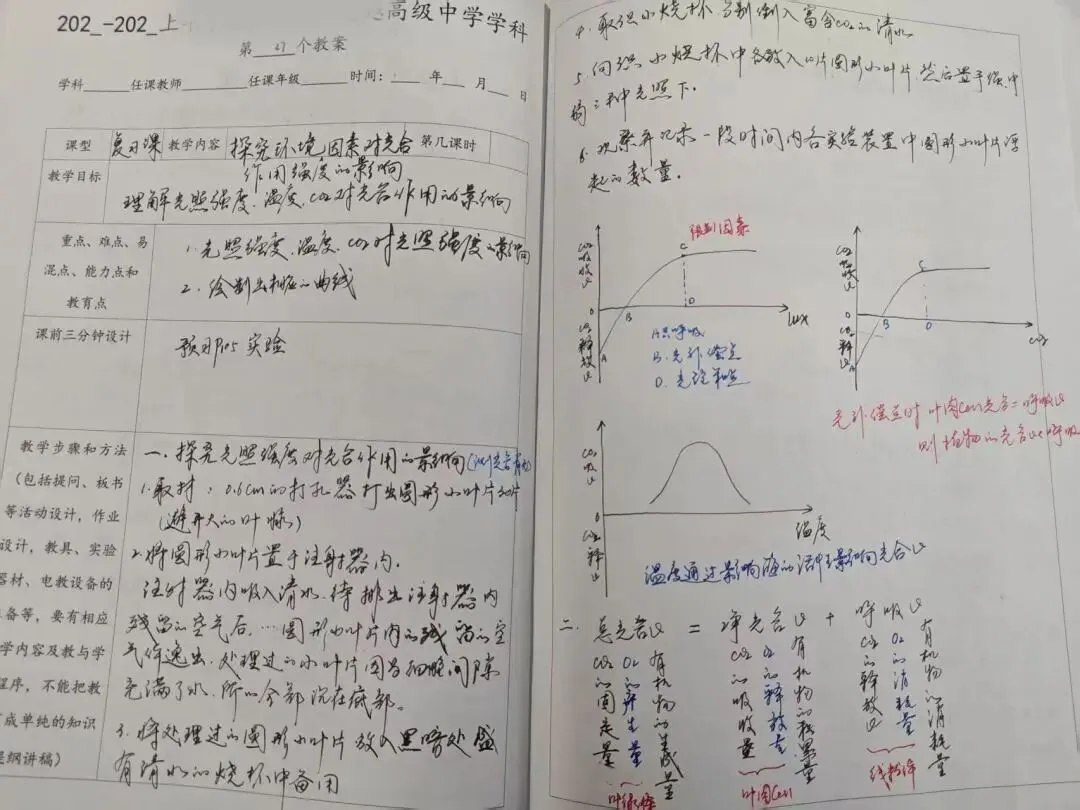 202_-202_上
高级中学学科
第 27 个教案
学科 任课教师 任课年级 时间: 年 月 日
课型 复习课 教学内容 探究环境因素对光合作用强度的影响 第几课时
教学目标
理解光照强度、温度、CO2对光合作用的影响
重点、难点、易混点、能力点和教育点
1. 光照强度、温度、CO2对光照强度的影响
2. 绘制出相应的曲线
课前三分钟设计
预习P105实验
教学步骤和方法
(包括提问、板书
等活动设计,作业
设计,教具、实验
器材、电教设备的
备等,要有相应
学内容及教与学
程序,不能把教
成单纯的知识
提纲讲稿)
一、探究光照强度对光合作用的影响
1. 取材:0.6cm的打孔器打出圆形小叶片30片
(避开大的叶脉)
2. 将圆形小叶片置于注射器内。
注射器内吸入清水,待排出注射器内
残留的空气后,…圆形小叶片内的残留的空
气体逸出。处理过的小叶片因为细胞间隙
充满了水,所以全部沉在底部。
3. 将处理过的圆形小叶片放入黑暗处盛
有清水的烧杯中备用
4. 取3只小烧杯,分别倒入富含CO2的清水
5. 向3只小烧杯中各放入10片圆形小叶片,然后置于强、中、
弱三种光照下。
6. 观察并记录一段时间内各实验装置中圆形小叶片浮
起的数量。
CO2吸收量
0
CO2释放量
A
B
C
D
限制因素
lux
A只呼吸
B. 光补偿点
D. 光饱和点
CO2吸收量
0
CO2释放量
A
B
C
D
CO2
光补偿点时 叶肉cell光合=呼吸量
则植物的光合量<呼吸
CO2吸量
0
CO2释量
温度
温度通过影响酶的活性影响光合量
二. 总光合量 = 净光合量 + 呼吸量
CO2的固定量
O2的产生量
有机物的生成量
CO2的吸收量
O2的释放量
有机物的积累量
CO2的释放量
O2的消耗量
有机物的消耗量
叶绿体
叶肉cell
线粒体